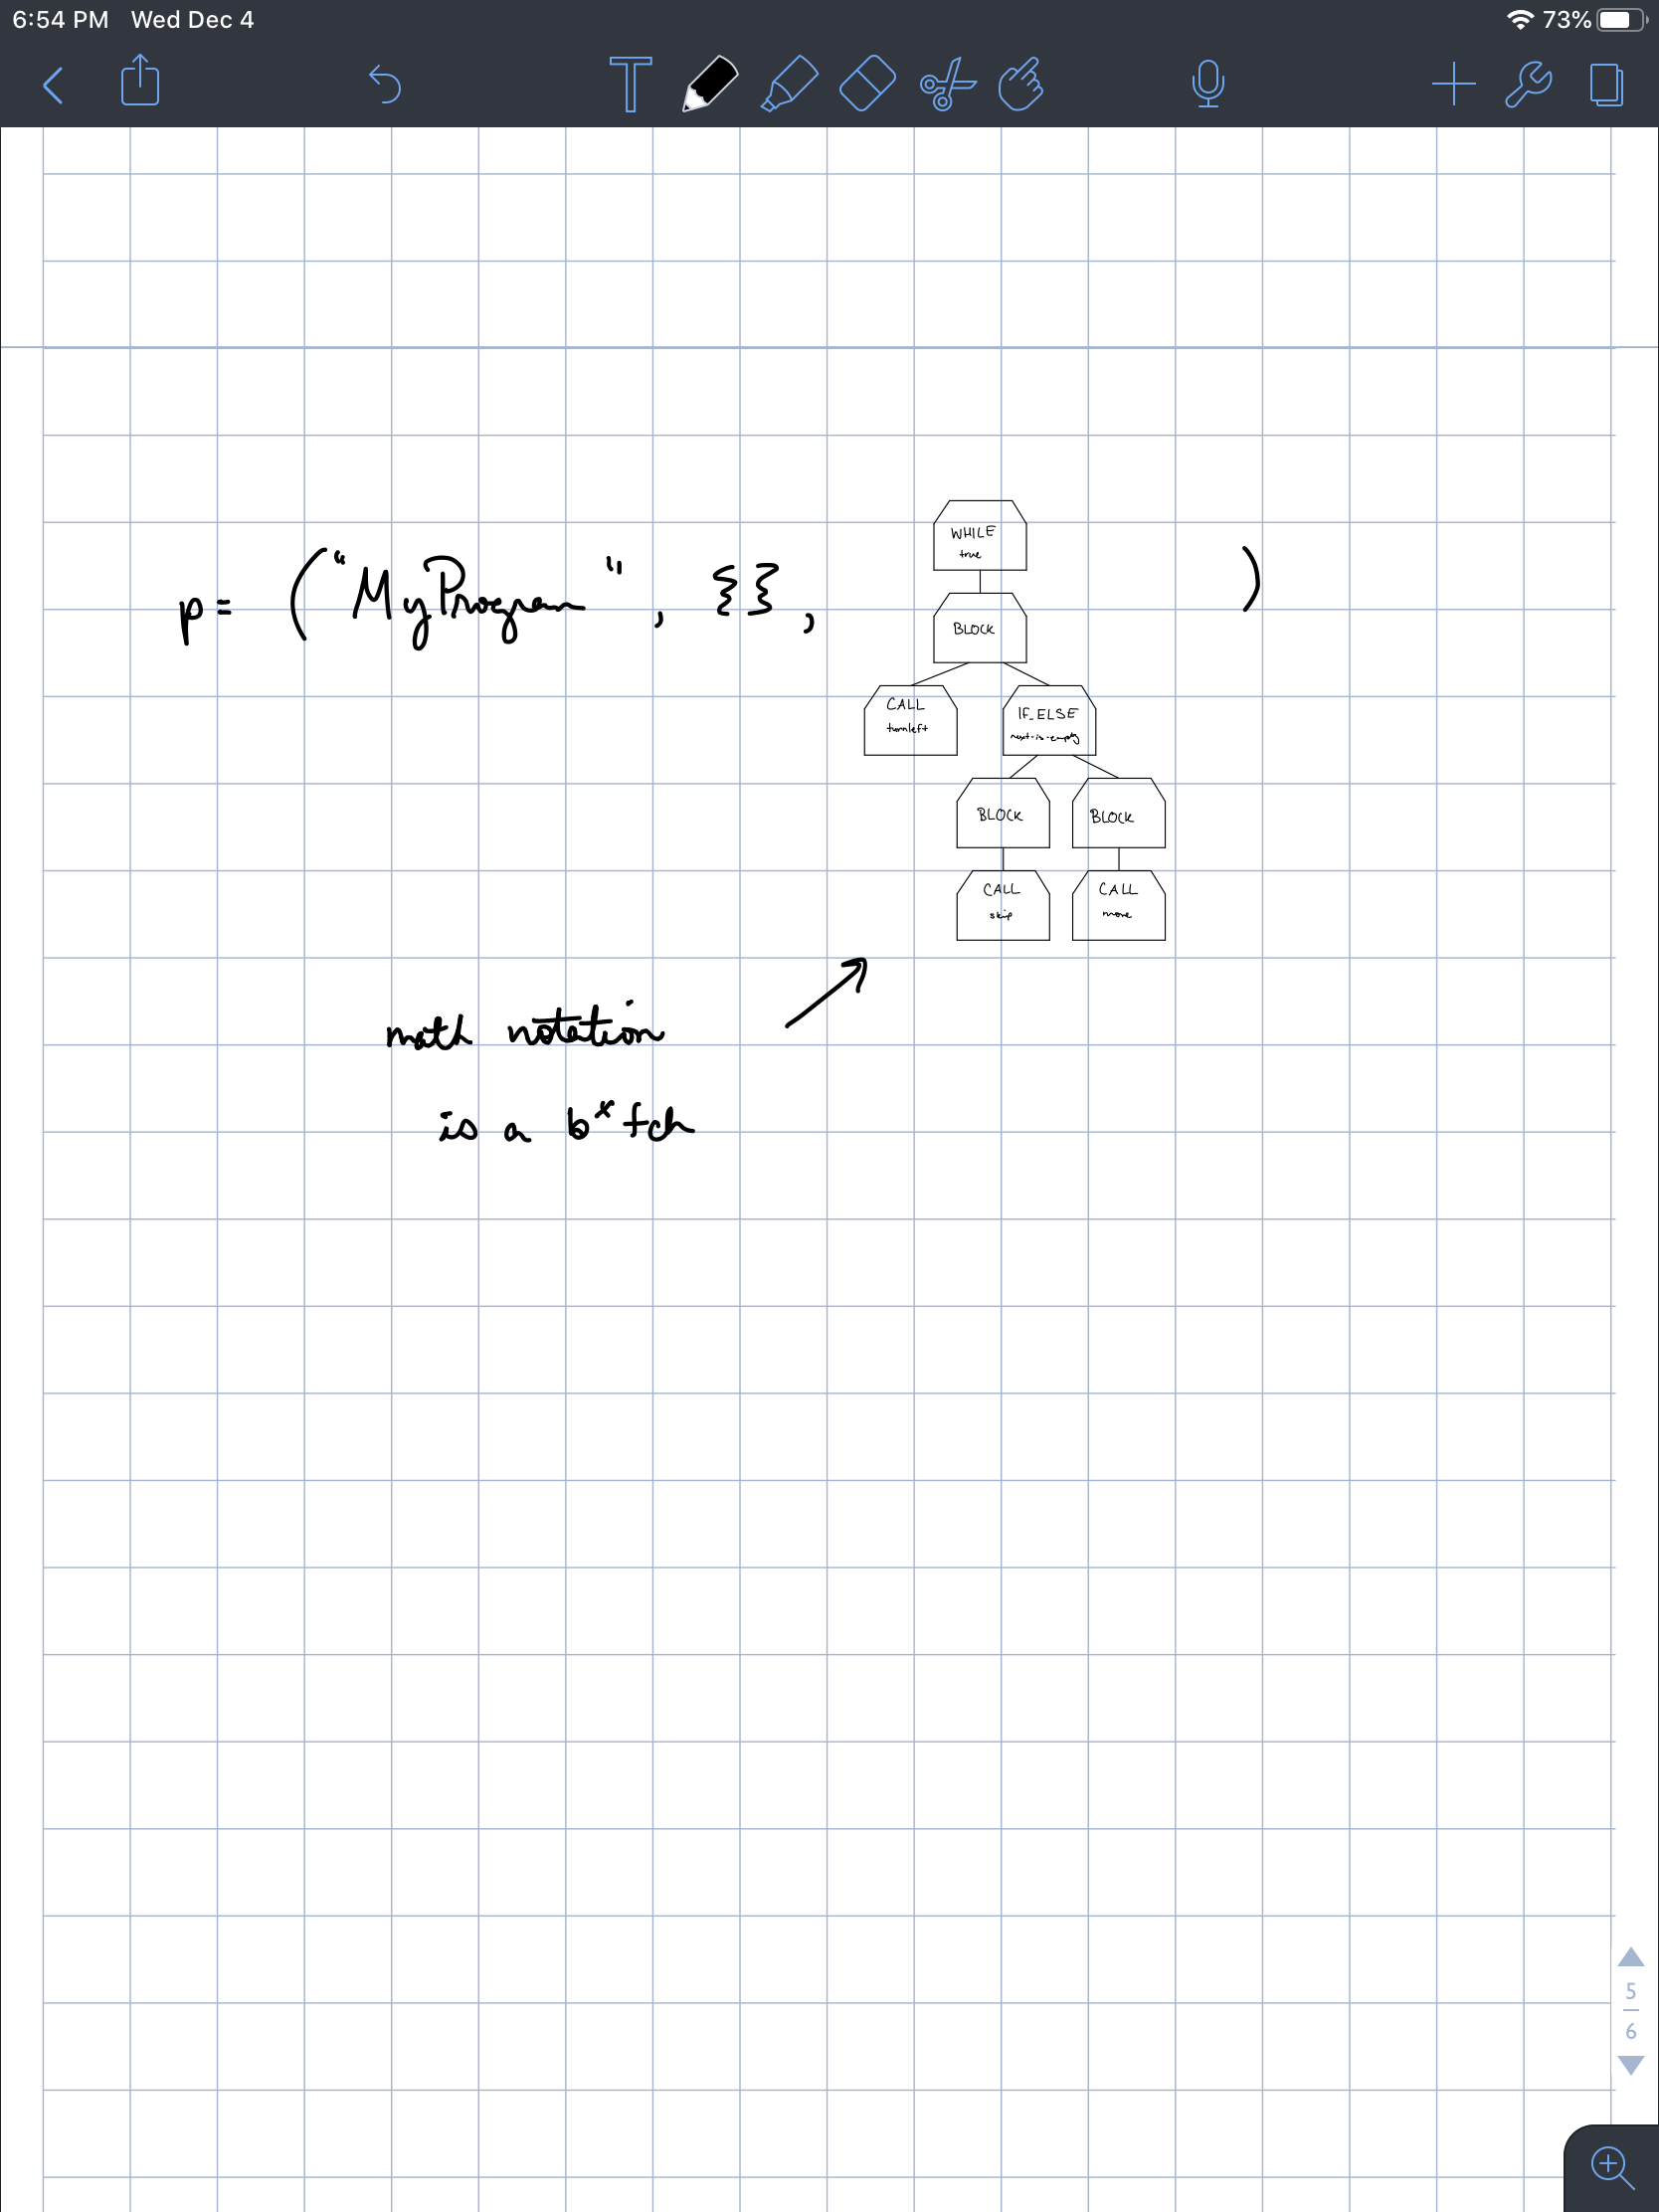 6:54 PM Wed Dec 4 73%
T
p = ("MyProgram", {}, )
WHILE
true
BLOCK
CALL
turnleft
IF_ELSE
next-is-empty
BLOCK BLOCK
CALL CALL
skip move
math notation
is a b*tch
5
6